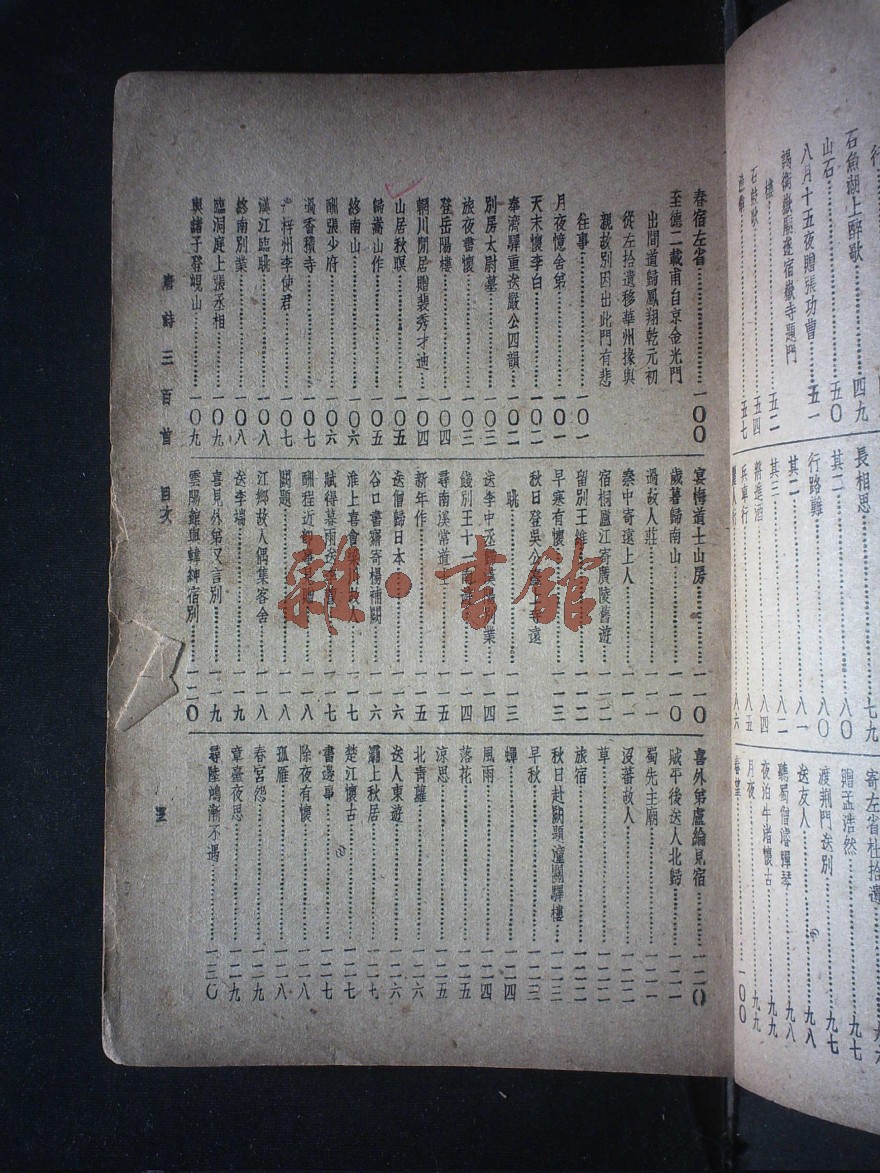 石魚湖上醉歌 四九
山石 五〇
八月十五夜贈張功曹 五一
謁衡嶽廟遂宿嶽寺題門
樓 五二
石鼓歌 五四
五七
長相思 七九
其二 八〇
行路難 八〇
其二 八一
其三 八二
將進酒 八四
兵車行 八五
麗人行 八六
寄左省杜拾遺
贈孟浩然 九七
渡荊門送別 九七
送友人 九八
聽蜀僧濬彈琴 九八
夜泊牛渚懷古 九九
月夜 九九
春望 一〇〇
春宿左省 一〇〇
至德二載甫自京金光門
出間道歸鳳翔乾元初
從左拾遺移華州掾與
親故別因出此門有悲
往事 一〇一
月夜憶舍弟 一〇一
天末懷李白 一〇二
奉濟驛重送嚴公四韻 一〇二
別房太尉墓 一〇三
旅夜書懷 一〇三
登岳陽樓 一〇四
輞川閒居贈裴秀才迪 一〇四
山居秋暝 一〇五
歸嵩山作 一〇五
終南山 一〇六
酬張少府 一〇六
過香積寺 一〇七
梓州李使君 一〇七
漢江臨眺 一〇八
終南別業 一〇八
臨洞庭上張丞相 一〇九
與諸子登峴山 一〇九
宴梅道士山房 一一〇
歲暮歸南山 一一〇
過故人莊 一一一
秦中寄遠上人 一一一
宿桐廬江寄廣陵舊遊 一一二
留別王維
早寒有懷 一一三
秋日登吳公臺上寺遠
眺 一一三
送李中丞歸漢陽別業 一一四
餞別王十一南遊 一一四
尋南溪常道士 一一五
新年作 一一五
送僧歸日本 一一六
谷口書齋寄楊補闕 一一六
淮上喜會梁川故人 一一七
賦得暮雨送李冑 一一七
酬程近 一一八
闕題 一一八
江鄉故人偶集客舍 一一八
送李端 一一九
喜見外弟又言別 一一九
雲陽館與韓紳宿別 一二〇
喜外弟盧綸見宿 一二〇
賊平後送人北歸 一二一
蜀先主廟 一二一
沒蕃故人 一二二
草 一二二
旅宿 一二二
秋日赴闕題潼關驛樓 一二三
早秋 一二三
蟬 一二四
風雨 一二四
落花 一二五
涼思 一二五
北青蘿 一二六
送人東遊 一二六
灞上秋居 一二七
楚江懷古 一二七
書邊事 一二七
除夜有懷 一二八
孤雁 一二八
春宮怨 一二九
章臺夜思 一二九
尋陸鴻漸不遇 一三〇
唐詩三百首 目次
雜·書館